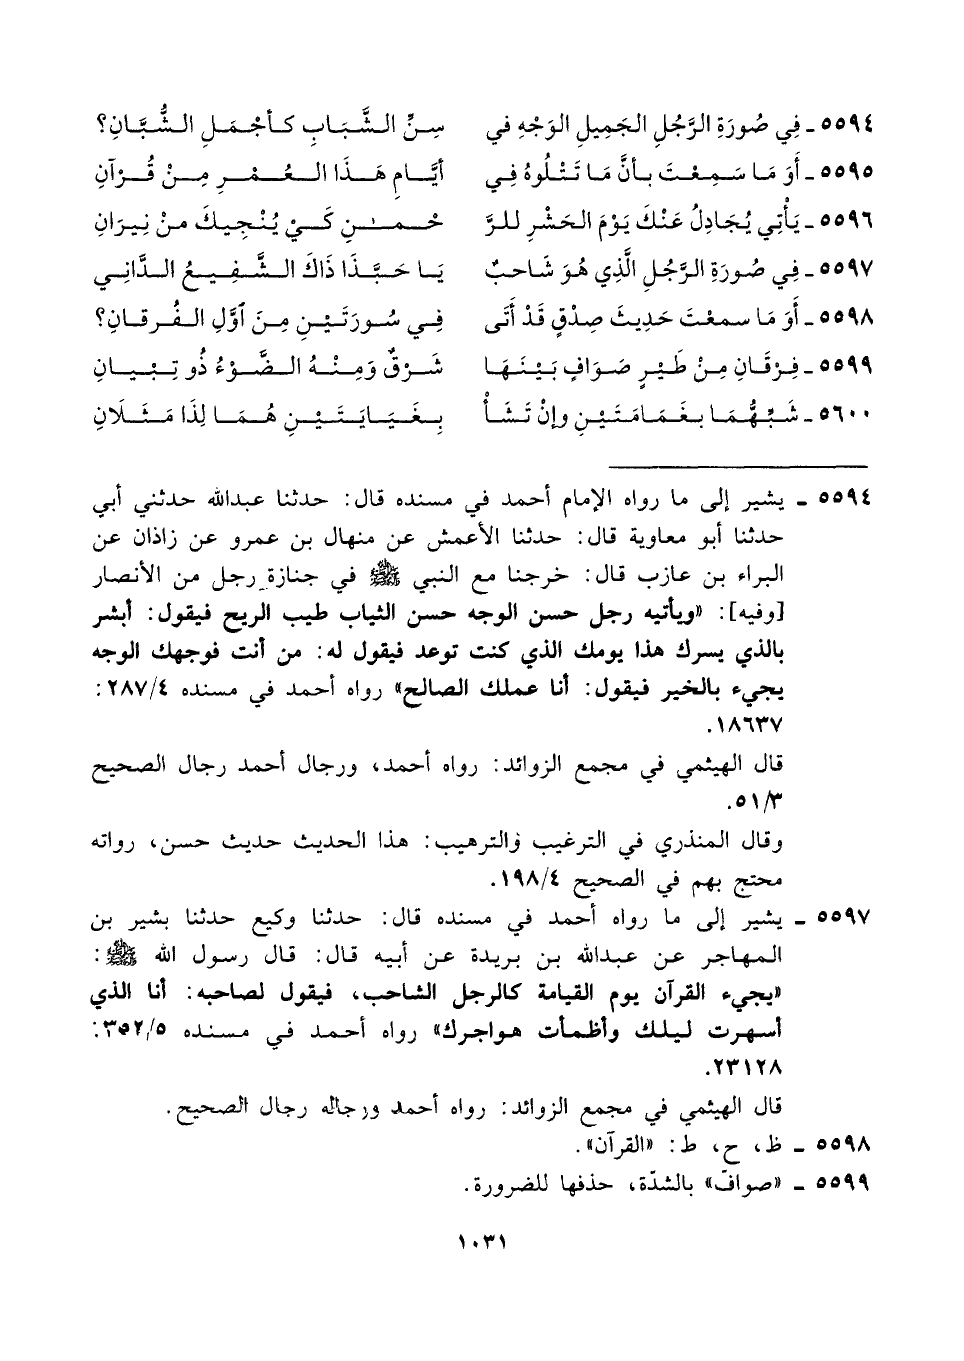 ٥٥٩٤ ـ فِي صُورَةِ الرَّجُلِ الجَمِيلِ الوَجْهِ في سِنِّ الشَّبَابِ كَأَجْمَلِ الشُّبَّانِ؟
٥٥٩٥ ـ أَوَ مَا سَمِعْتَ بأنَّ مَا تَتْلُوهُ فِي أيَّامِ هَذَا العُمْرِ مِنْ قُرْآنِ
٥٥٩٦ ـ يَأْتِي يُجَادِلُ عَنْكَ يَوْمَ الحَشْرِ للرَّ حْمـٰنِ كَيْ يُنْجِيكَ منْ نِيرَانِ
٥٥٩٧ ـ فِي صُورَةِ الرَّجُلِ الَّذِي هُوَ شَاحبٌ يَا حَبَّذَا ذَاكَ الشَّفِيعُ الدَّانِي
٥٥٩٨ ـ أَوَ مَا سمعْتَ حَدِيثَ صِدْقٍ قَدْ أَتَى فِي سُورَتَيْنِ مِنَ أوَّلِ الفُرقَانِ؟
٥٥٩٩ ـ فِرْقَانِ مِنْ طَيْرٍ صَوَافٍ بَيْنَهَا شَرْقٌ وَمِنْهُ الضَّوْءُ ذُو تِبْيَانِ
٥٦٠٠ ـ شَبِّهْهُمَا بغَمَامَتَيْنِ وإنْ تَشَأْ بِغَيَايَتَيْنِ هُمَا لِذَا مَثَلَانِ
٥٥٩٤ ـ يشير إلى ما رواه الإمام أحمد في مسنده قال: حدثنا عبدالله حدثني أبي
حدثنا أبو معاوية قال: حدثنا الأعمش عن منهال بن عمرو عن زاذان عن
البراء بن عازب قال: خرجنا مع النبي ﷺ في جنازة رجل من الأنصار
[وفيه]: «ويأتيه رجل حسن الوجه حسن الثياب طيب الريح فيقول: أبشر
بالذي يسرك هذا يومك الذي كنت توعد فيقول له: من أنت فوجهك الوجه
يجيء بالخير فيقول: أنا عملك الصالح» رواه أحمد في مسنده ٢٨٧/٤:
١٨٦٣٧.
قال الهيثمي في مجمع الزوائد: رواه أحمد، ورجال أحمد رجال الصحيح
٥١/٣.
وقال المنذري في الترغيب والترهيب: هذا الحديث حديث حسن، رواته
محتج بهم في الصحيح ١٩٨/٤.
٥٥٩٧ ـ يشير إلى ما رواه أحمد في مسنده قال: حدثنا وكيع حدثنا بشير بن
المهاجر عن عبدالله بن بريدة عن أبيه قال: قال رسول الله ﷺ:
«يجيء القرآن يوم القيامة كالرجل الشاحب، فيقول لصاحبه: أنا الذي
أسهرت ليلك وأظمأت هواجرك» رواه أحمد في مسنده ٣٥٢/٥:
٢٣١٢٨.
قال الهيثمي في مجمع الزوائد: رواه أحمد ورجاله رجال الصحيح.
٥٥٩٨ ـ ظ، ح، ط: «القرآن».
٥٥٩٩ ـ «صوافّ» بالشدّة، حذفها للضرورة.
١٠٣١